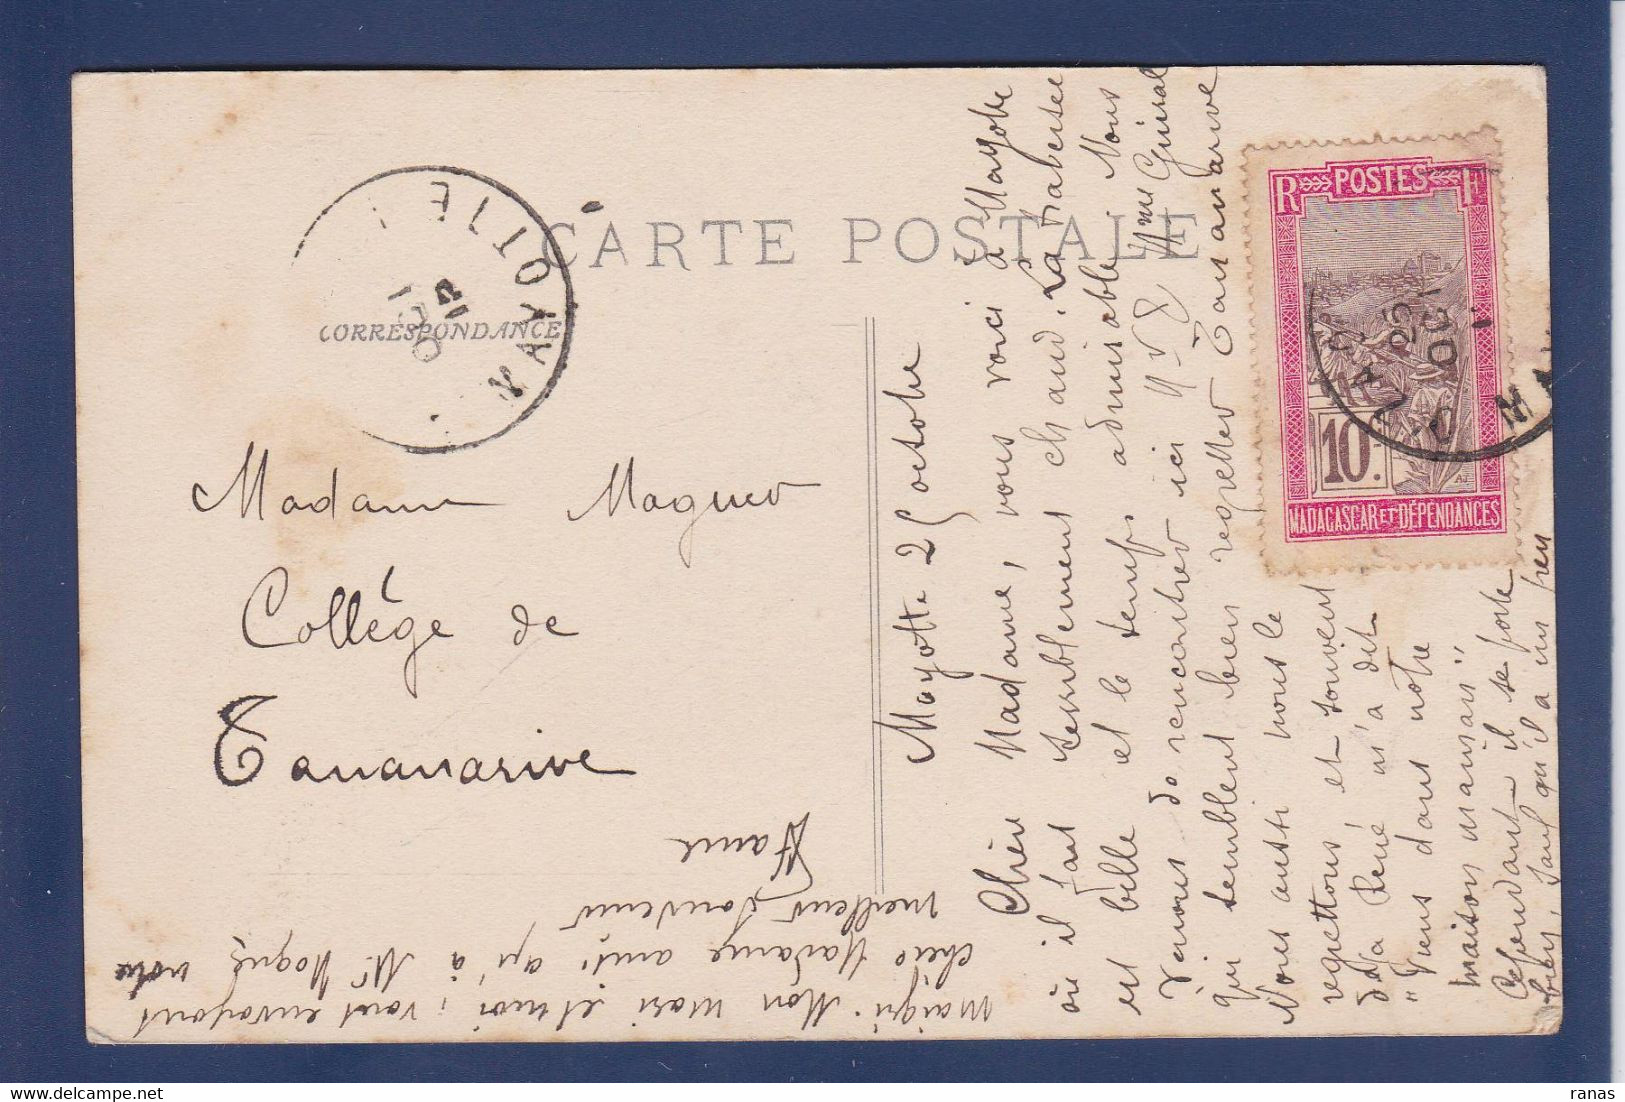 CARTE POSTALE
CORRESPONDANCE
MAYOTTE
OCT
Madame Maguer
Collège de
Tananarive
R POSTES F
10 c.
MADAGASCAR ET DÉPENDANCES
25
OCT
Mayotte 25 octobre
Chère Madame, vous voici à Mayotte
où il fait terriblement chaud. La traversée
est belle et le temps admirable. Nous
venons de rencontrer ici Mr & Mme
qui semblent bien regretter Tananarive
Nous aussi nous le
regrettons et souvent
déjà René m'a dit
"Viens dans notre
maison maman"
Cependant il se porte
bien, sauf qu'il a un peu
maigri. Mon mari et moi vous envoyons
chère Madame ainsi qu'à Mr notre
meilleur souvenir